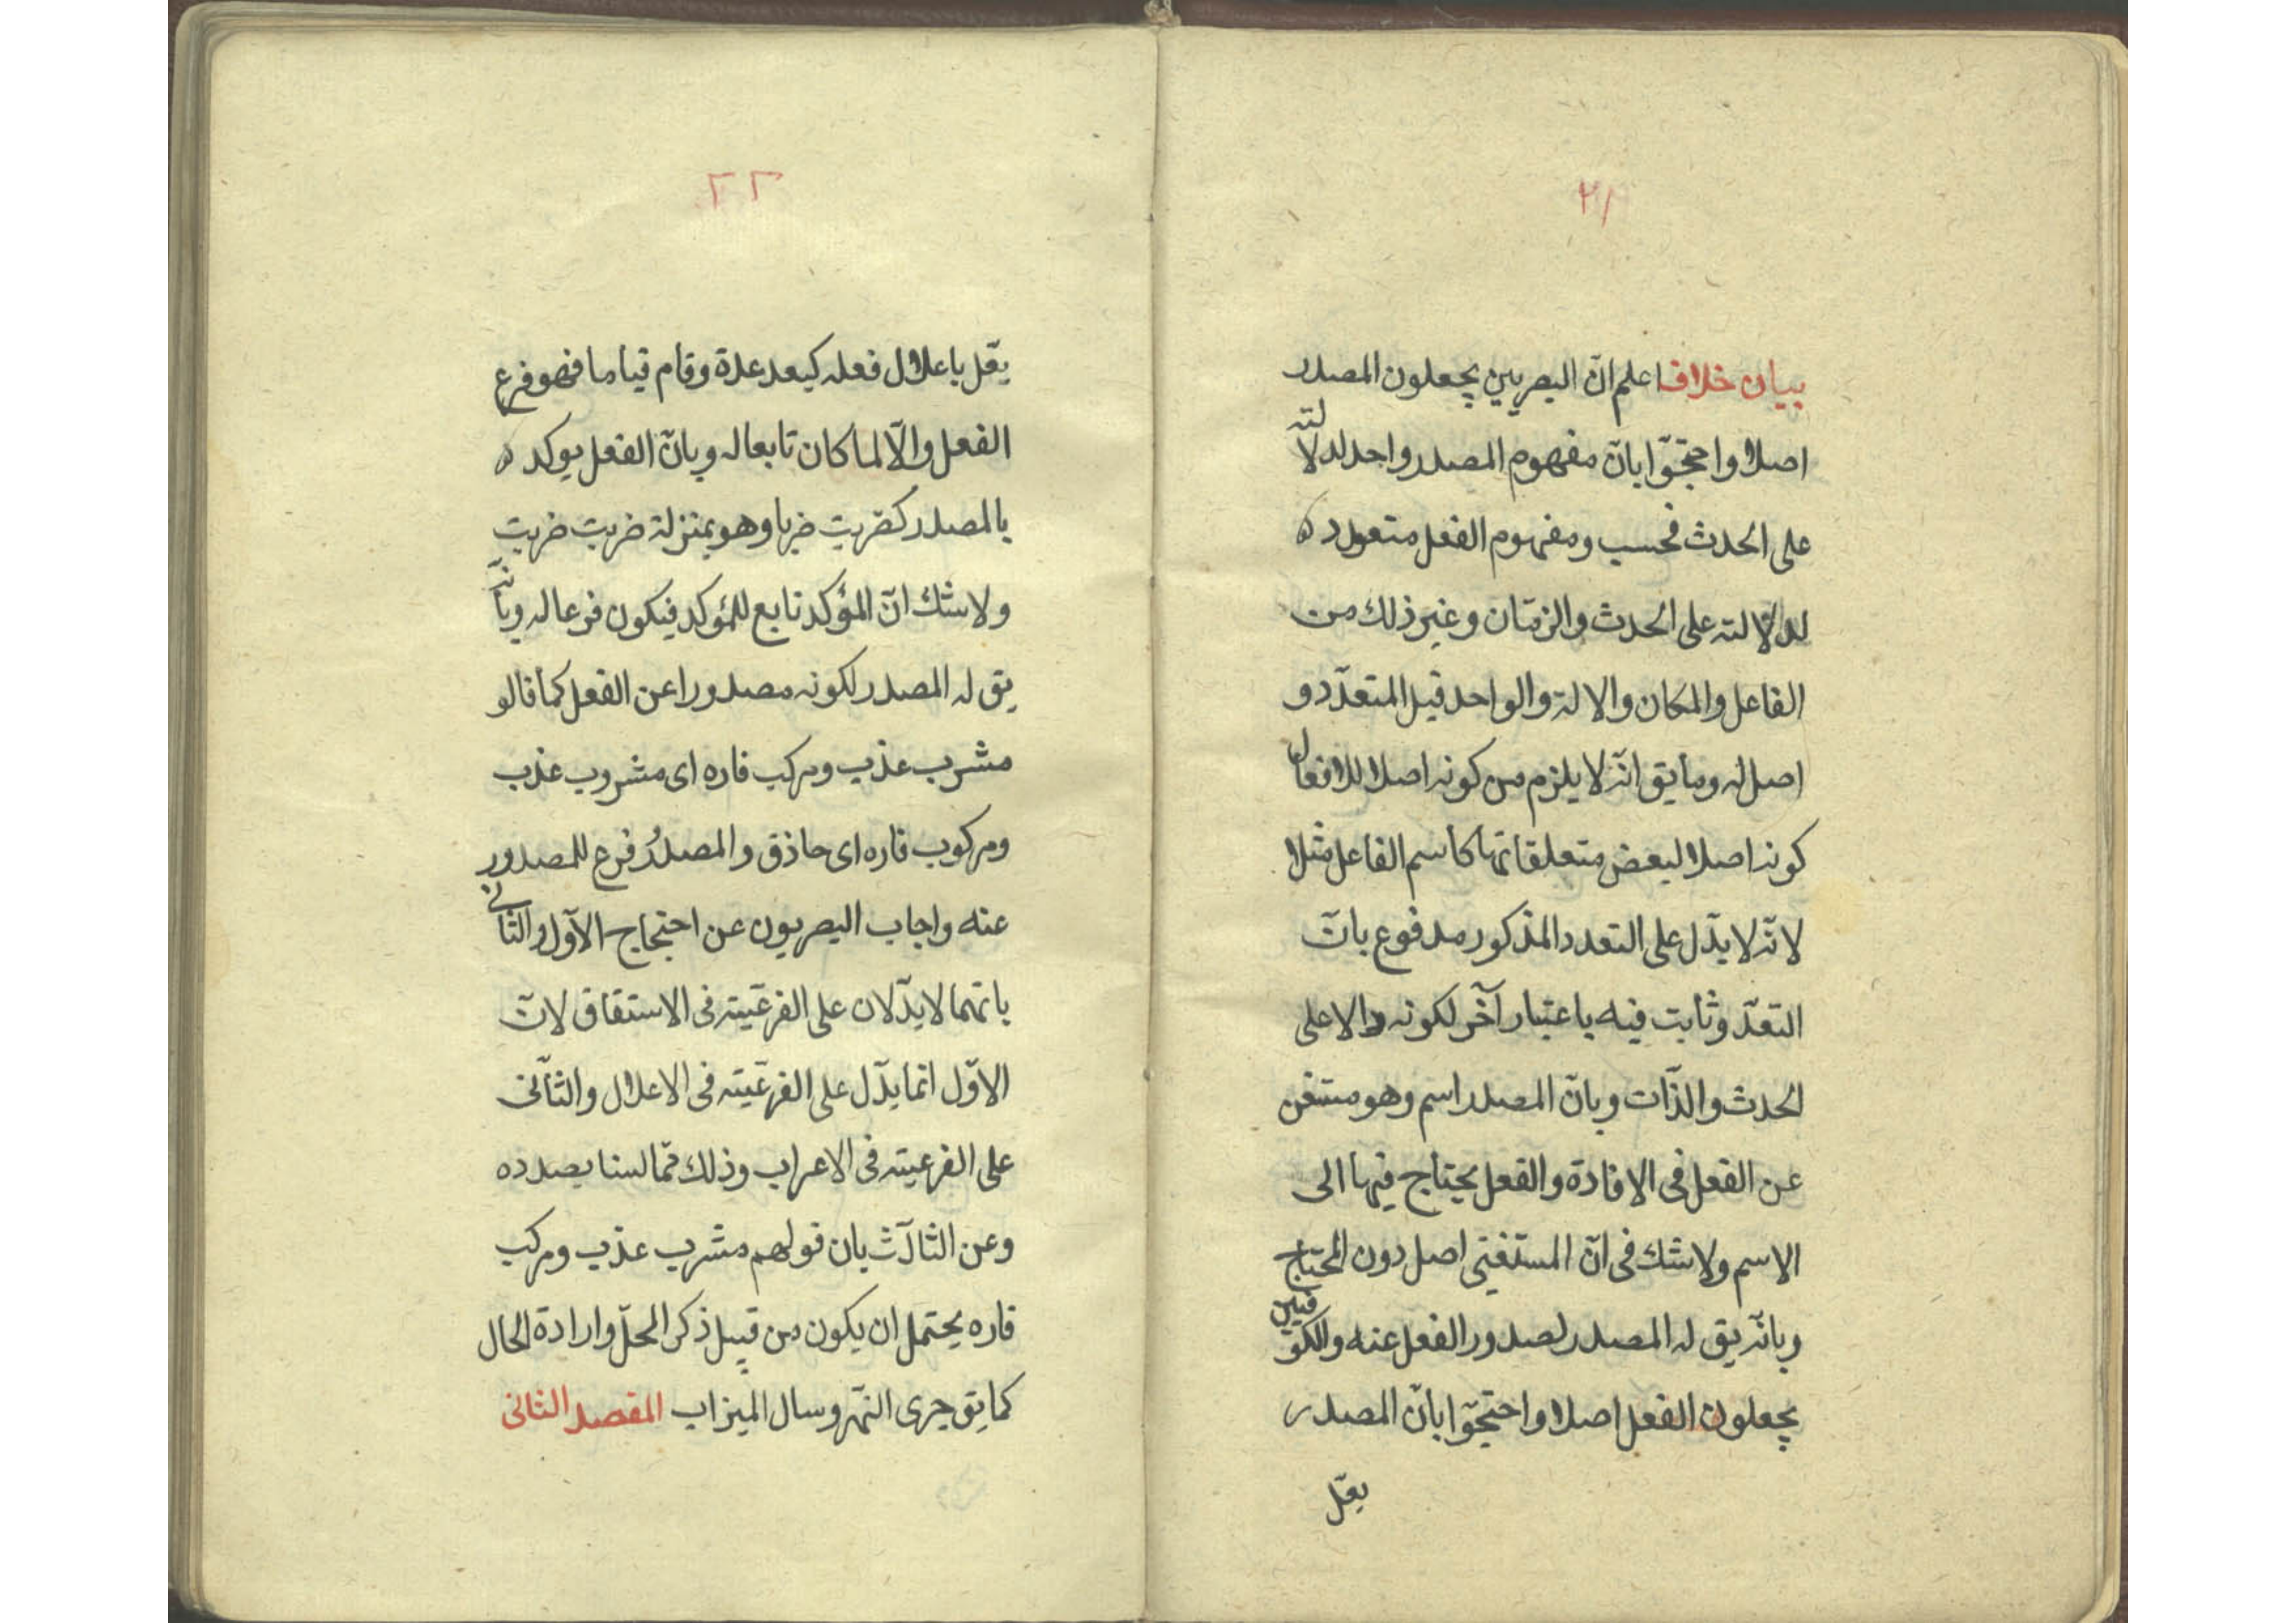 ٢١
بيان خلاف اعلم انّ البصريين يجعلون المصدر
اصلا واحتجّوا بانّ مفهوم المصدر واحد لدلالته
على الحدث فحسب ومفهوم الفعل متعدده
لدلالته على الحدث والزمّان وغير ذلك من
الفاعل والمكان والالة والواحد قبل المتعدّد و
اصل له وما يق انّه لا يلزم من كونه اصلا للافعال
كونه اصلا لبعض متعلقاتها كاسم الفاعل مثلا
لانّه لا يدّل على التعدد المذكور مدفوع بانّ
التعدّد ثابت فيه باعتبار آخر لكونه دالا على
الحدث والذّات وبانّ المصدر اسم وهو مستغن
عن الفعل فى الافادة والفعل يحتاج فيها الى
الاسم ولا شك فى انّ المستغنى اصل دون المحتاج
وبانّه يق له المصدر لصدور الفعل عنه والكوفيين
يجعلون الفعل اصلا واحتجّوا بانّ المصدر
يعّل
٢٢
يعّل باعلال فعله كيعد عدة وقام قياما فهو فرع
الفعل والّا لما كان تابعا له وبانّ الفعل يوكده
بالمصدر كضربت ضربا وهو بمنزلة ضربت ضربت
ولا شك انّ المؤكد تابع للمؤكد فيكون فرعا له وبانّه
يق له المصدر لكونه مصدورا عن الفعل كما قالو
مشرب عذب ومركب فاره اى مشروب عذب
ومركوب فاره اى حاذق والمصدرُ فرع للمصدور
عنه واجاب البصريون عن احتجاج الاوّل والثانى
بانهما لا يدّلان على الفرعيّته فى الاستقاق لانّ
الاوّل انما يدّل على الفرعيّته فى الاعلال والثانّى
على الفرعيته فى الاعراب وذلك ممّا لسنا بصدده
وعن الثالث بان قولهم مشرب عذب ومركب
فاره يحتمل ان يكون من قبيل ذكر المحلّ وارادة الحال
كما يق جرى النّهر وسال الميزاب المقصد الثانى